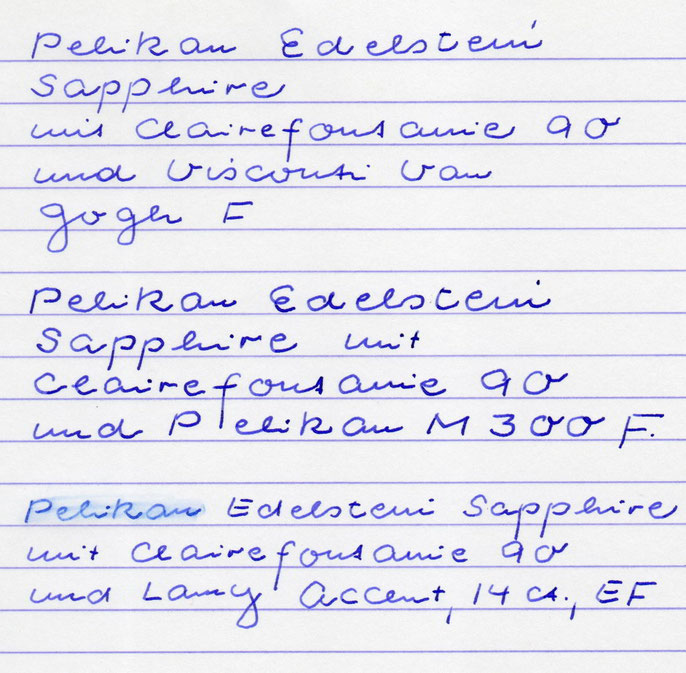 Pelikan Edelstein
Sapphire
mit Clairefontaine 90
und Visconti Van
Gogh F
Pelikan Edelstein
Sapphire mit
Clairefontaine 90
und Pelikan M 300 F.
Pelikan Edelstein Sapphire
mit Clairefontaine 90
und Lamy Accent, 14 ct., EF